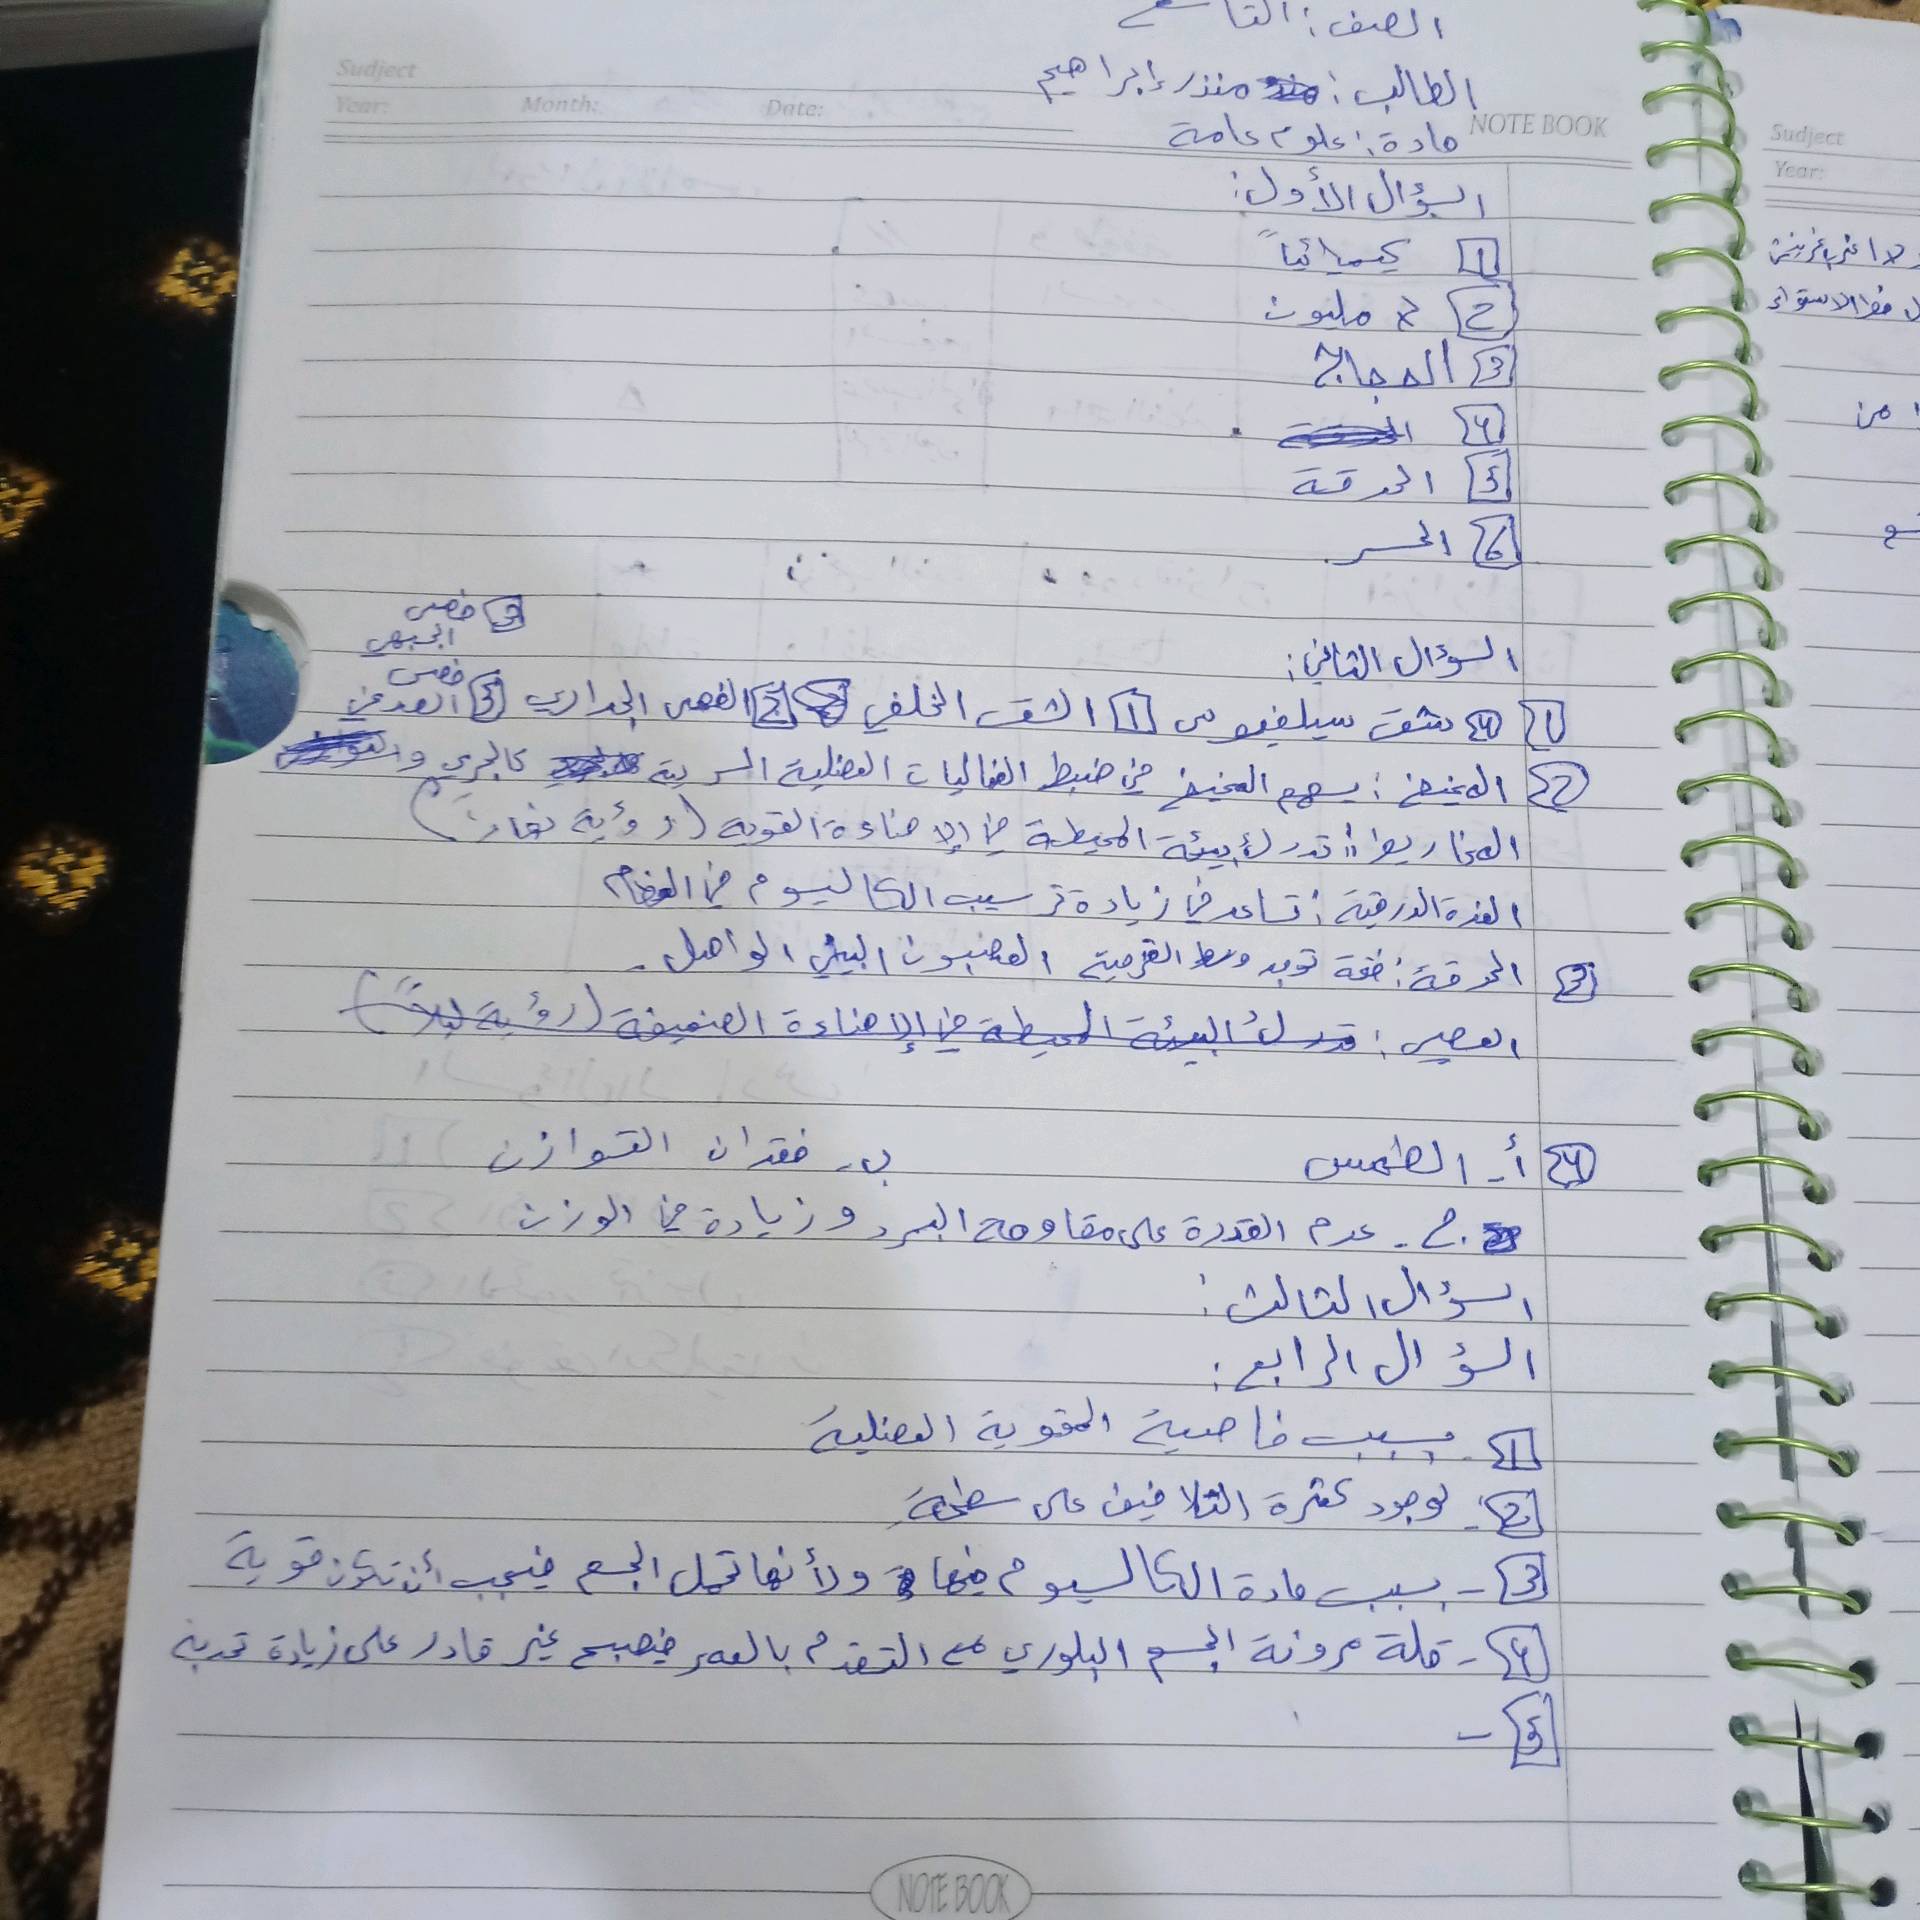 الصف: التاسع
الطالب: منذر إبراهيم
مادة: علوم عامة
Sudject
Year: Month: Date:
NOTE BOOK
السؤال الأول:
1 كيميائياً
2 2 مليون
3 الحجاج
4
5 الحدقة
6 الحسر
السؤال الثاني:
3 فص الجبهي
1 4 شق سيلفيوس 1 الشق الخلفي 2 الفص الجداري 5 فص القذفي
2 المخيخ: يسهم المخيخ في ضبط الفعاليات العضلية السريعة كالجري
المخاريط: تدرك بيئة المحيطة في الإضاءة القوية (رؤية نهاراً)
الغدة الدرقية: تساعد في زيادة ترسيب الكالسيوم في العظام
3 الحدقة: فتحة توجد وسط القزحية العصبون البيني الواصل.
العصي: تدرك البيئة المحيطة في الإضاءة الضعيفة (رؤية ليلاً)
4 أ- الطمس ب- فقدان التوازن
ج- عدم القدرة على مقاومة البرد وزيادة في الوزن
السؤال الثالث:
السؤال الرابع:
1- بسبب خاصية المقوية العضلية
2- لوجود كثرة التلافيف على سطحه
3- بسبب مادة الكالسيوم فيها ولأنها تحمل الجسم فيجب أن تكون قوية
4- قلة مرونة الجسم البلوري مع التقدم بالعمر فيصبح غير قادر على زيادة تحدبه
5-
NOTE BOOK
Sudject
Year: